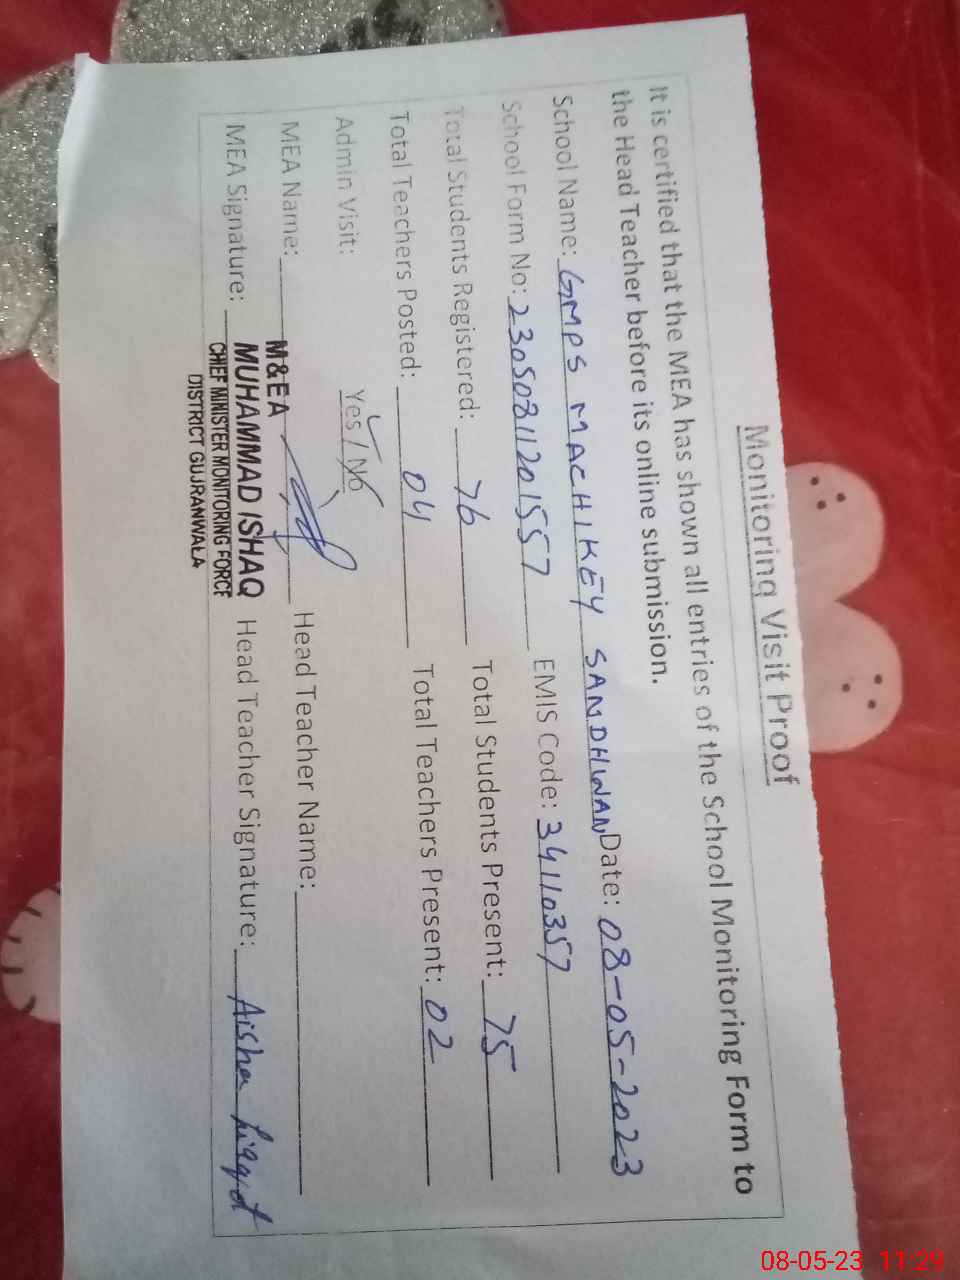 Monitoring Visit Proof
It is certified that the MEA has shown all entries of the School Monitoring Form to
the Head Teacher before its online submission.
School Name: GMPS MACHIKEY SANDHWAN Date: 08-05-2023
School Form No: 23050811201557 EMIS Code: 34110357
Total Students Registered: 76 Total Students Present: 75
Total Teachers Posted: 04 Total Teachers Present: 02
Admin Visit: Yes / No
MEA Name: Head Teacher Name:
MEA Signature: Head Teacher Signature: Aisha Liaqat
M&EA
MUHAMMAD ISHAQ
CHIEF MINISTER MONITORING FORCE
DISTRICT GUJRANWALA
08-05-23 11:29